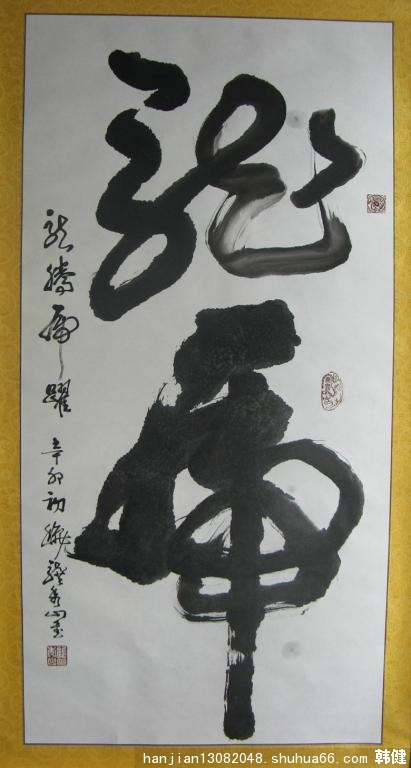 龍
虎
龍騰虎躍 辛卯初
hanjian13082048.shuhua66.com 韩健